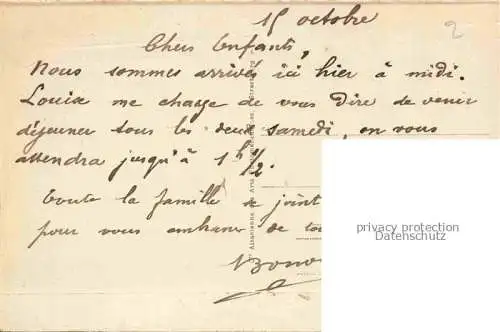 15 octobre
2
Chers Enfants,
Nous sommes arrivés ici hier à midi.
Louise me charge de vous dire de venir
déjeuner tous les deux samedi, on vous
attendra jusqu'à 1h 1/2.
Toute la famille se joint
pour vous embrasser de
privacy protection
Datenschutz